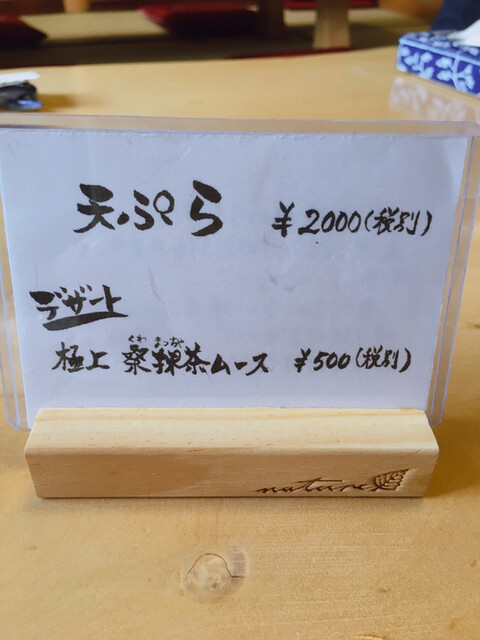 天ぷら ¥2000(税別)
デザート
くわ まっちゃ
極上 桑抹茶ムース ¥500(税別)
nature